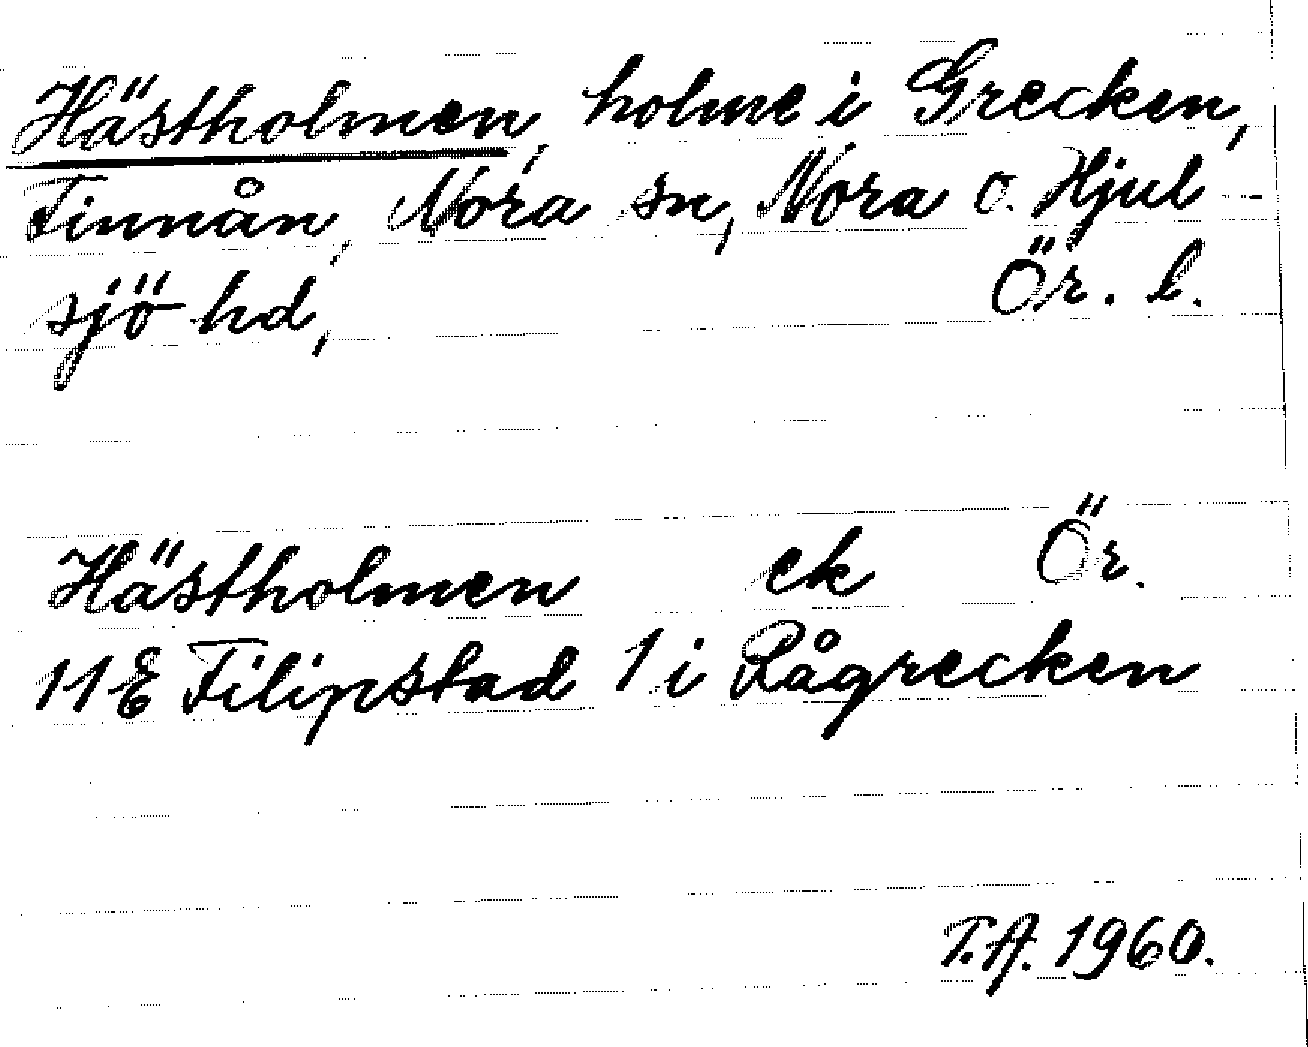 Hästholmen, holme i Grecken,
Finnån, Nora sn, Nora o. Hjul
sjö hd, Ör. l.
Hästholmen ek Ör.
11 E Filipstad 1 i Rågrecken
T.A. 1960.